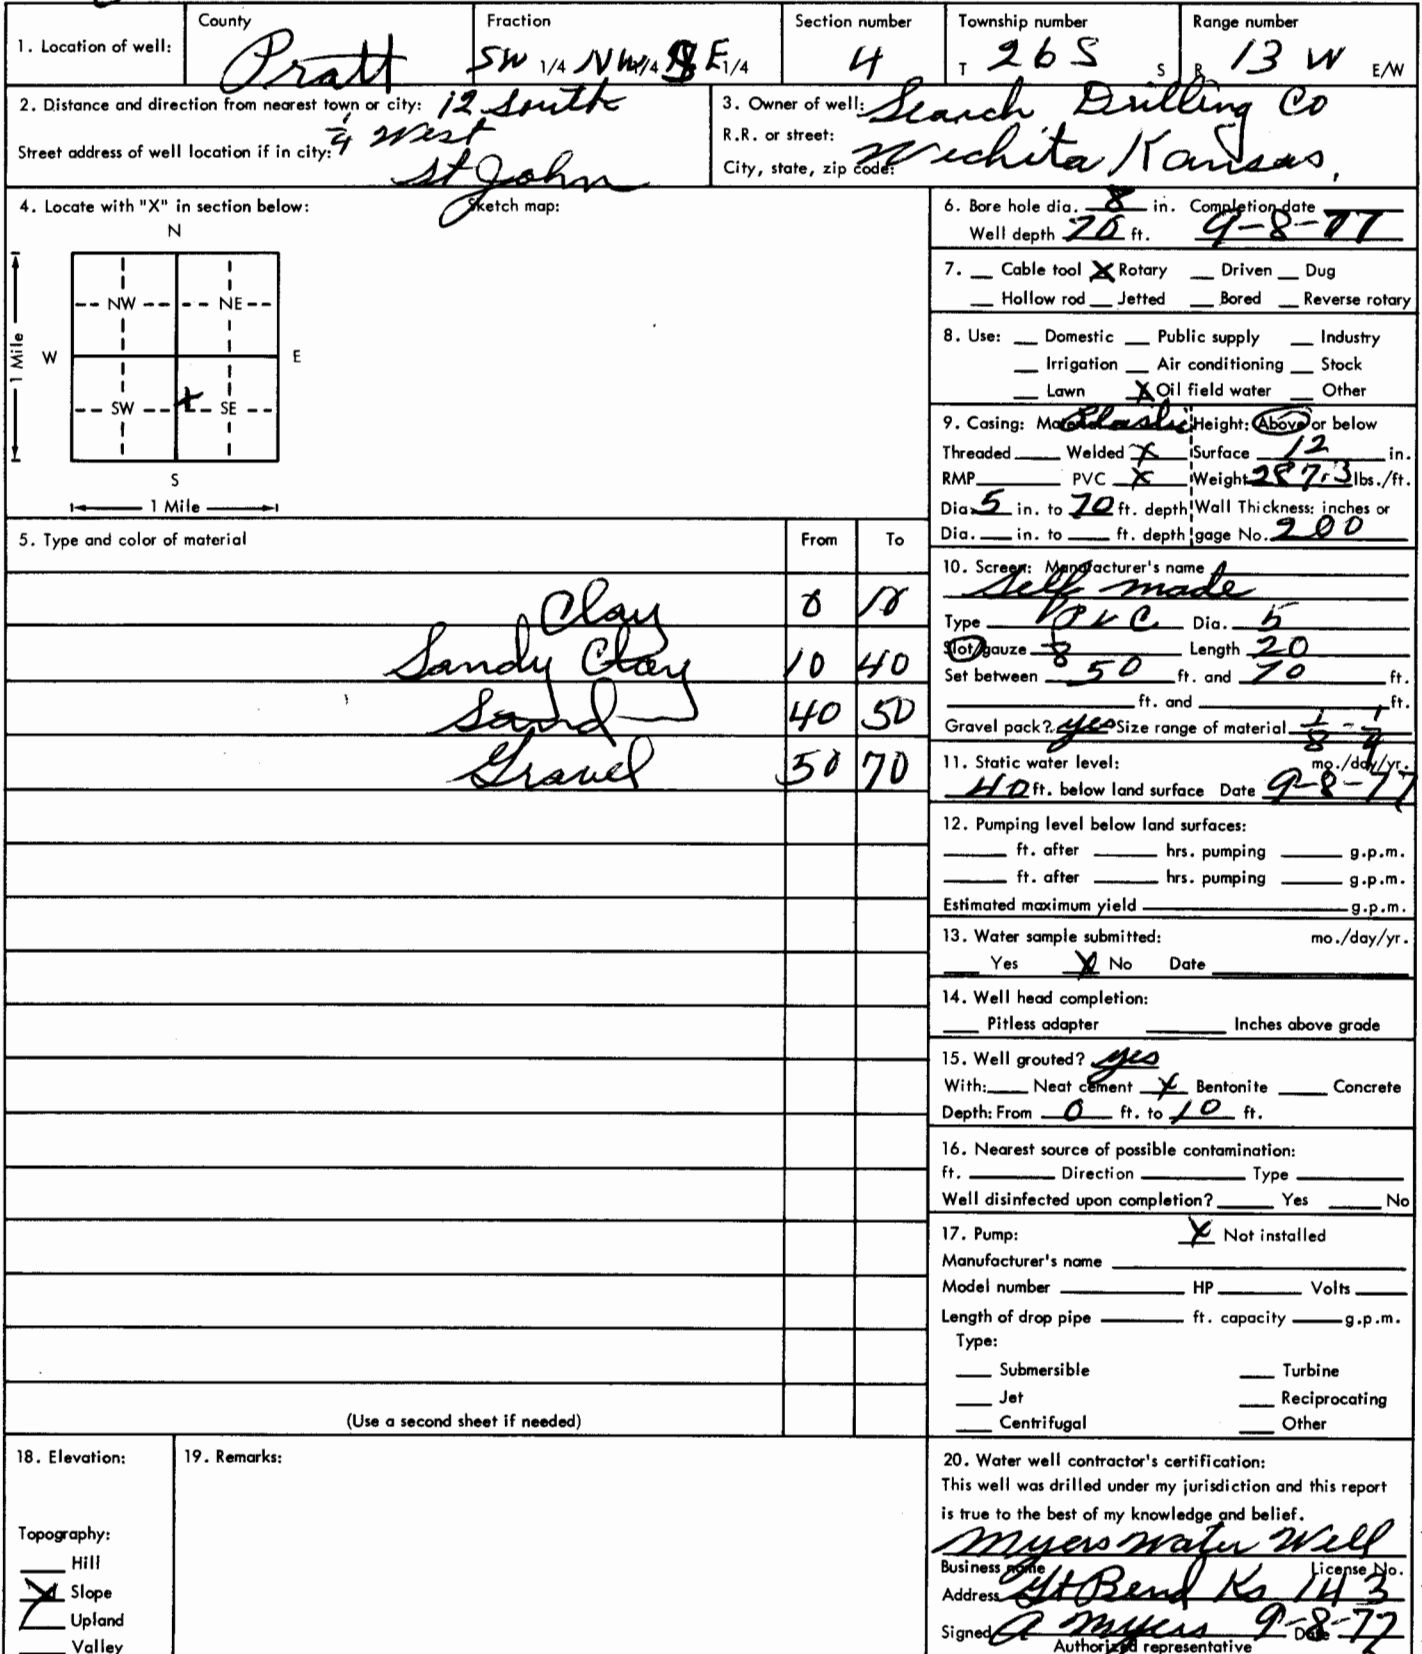 County Fraction Section number Township number Range number
1. Location of well: Pratt SW 1/4 NW 1/4 SE 1/4 4 T 26 S S R 13 W E/W
2. Distance and direction from nearest town or city: 12 South
1/4 West
Street address of well location if in city:
St John
3. Owner of well: Search Drilling Co
R.R. or street:
City, state, zip code: Wichita Kansas,
4. Locate with "X" in section below: Sketch map:
N
NW NE
W E
1 Mile
SW X SE
S
1 Mile
5. Type and color of material From To
Clay 0 10
Sandy Clay 10 40
Sand 40 50
Gravel 50 70
(Use a second sheet if needed)
6. Bore hole dia. 8 in. Completion date
Well depth 70 ft. 9-8-77
7. __ Cable tool X Rotary __ Driven __ Dug
__ Hollow rod __ Jetted __ Bored __ Reverse rotary
8. Use: __ Domestic __ Public supply __ Industry
__ Irrigation __ Air conditioning __ Stock
__ Lawn X Oil field water __ Other
9. Casing: Material Plastic Height: Above or below
Threaded __ Welded X Surface 12 in.
RMP __ PVC X Weight 287.3 lbs./ft.
Dia. 5 in. to 70 ft. depth Wall Thickness: inches or
Dia. __ in. to __ ft. depth gage No. 200
10. Screen: Manufacturer's name
Self made
Type PVC Dia. 5
Slot/gauze 1/8 Length 20
Set between 50 ft. and 70 ft.
__ ft. and __ ft.
Gravel pack? yes Size range of material 1/8 - 1/4
11. Static water level: mo./day/yr.
40 ft. below land surface Date 9-8-77
12. Pumping level below land surfaces:
__ ft. after __ hrs. pumping __ g.p.m.
__ ft. after __ hrs. pumping __ g.p.m.
Estimated maximum yield __ g.p.m.
13. Water sample submitted: mo./day/yr.
__ Yes X No Date __
14. Well head completion:
__ Pitless adapter __ Inches above grade
15. Well grouted? yes
With: __ Neat cement X Bentonite __ Concrete
Depth: From 0 ft. to 10 ft.
16. Nearest source of possible contamination:
ft. __ Direction __ Type __
Well disinfected upon completion? __ Yes __ No
17. Pump: X Not installed
Manufacturer's name __
Model number __ HP __ Volts __
Length of drop pipe __ ft. capacity __ g.p.m.
Type:
__ Submersible __ Turbine
__ Jet __ Reciprocating
__ Centrifugal __ Other
18. Elevation:
Topography:
__ Hill
X Slope
__ Upland
__ Valley
19. Remarks:
20. Water well contractor's certification:
This well was drilled under my jurisdiction and this report
is true to the best of my knowledge and belief.
Myers Water Well
Business name License No.
Address Gt Bend Ks 143
Signed A Myers 9-8-77 Date
Authorized representative